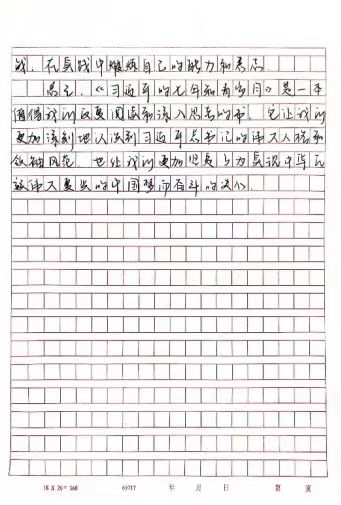 战，在实践中锻炼自己的能力和意志。
总之，《习近平的七年知青岁月》是一本
值得我们反复阅读和深入思考的书。它让我们
更加深刻地认识到习近平总书记的伟大人格和
领袖风范，也让我们更加坚定了为实现中华民
族伟大复兴的中国梦而奋斗的决心。
18 X 20 = 360 69717 年 月 日 第 页